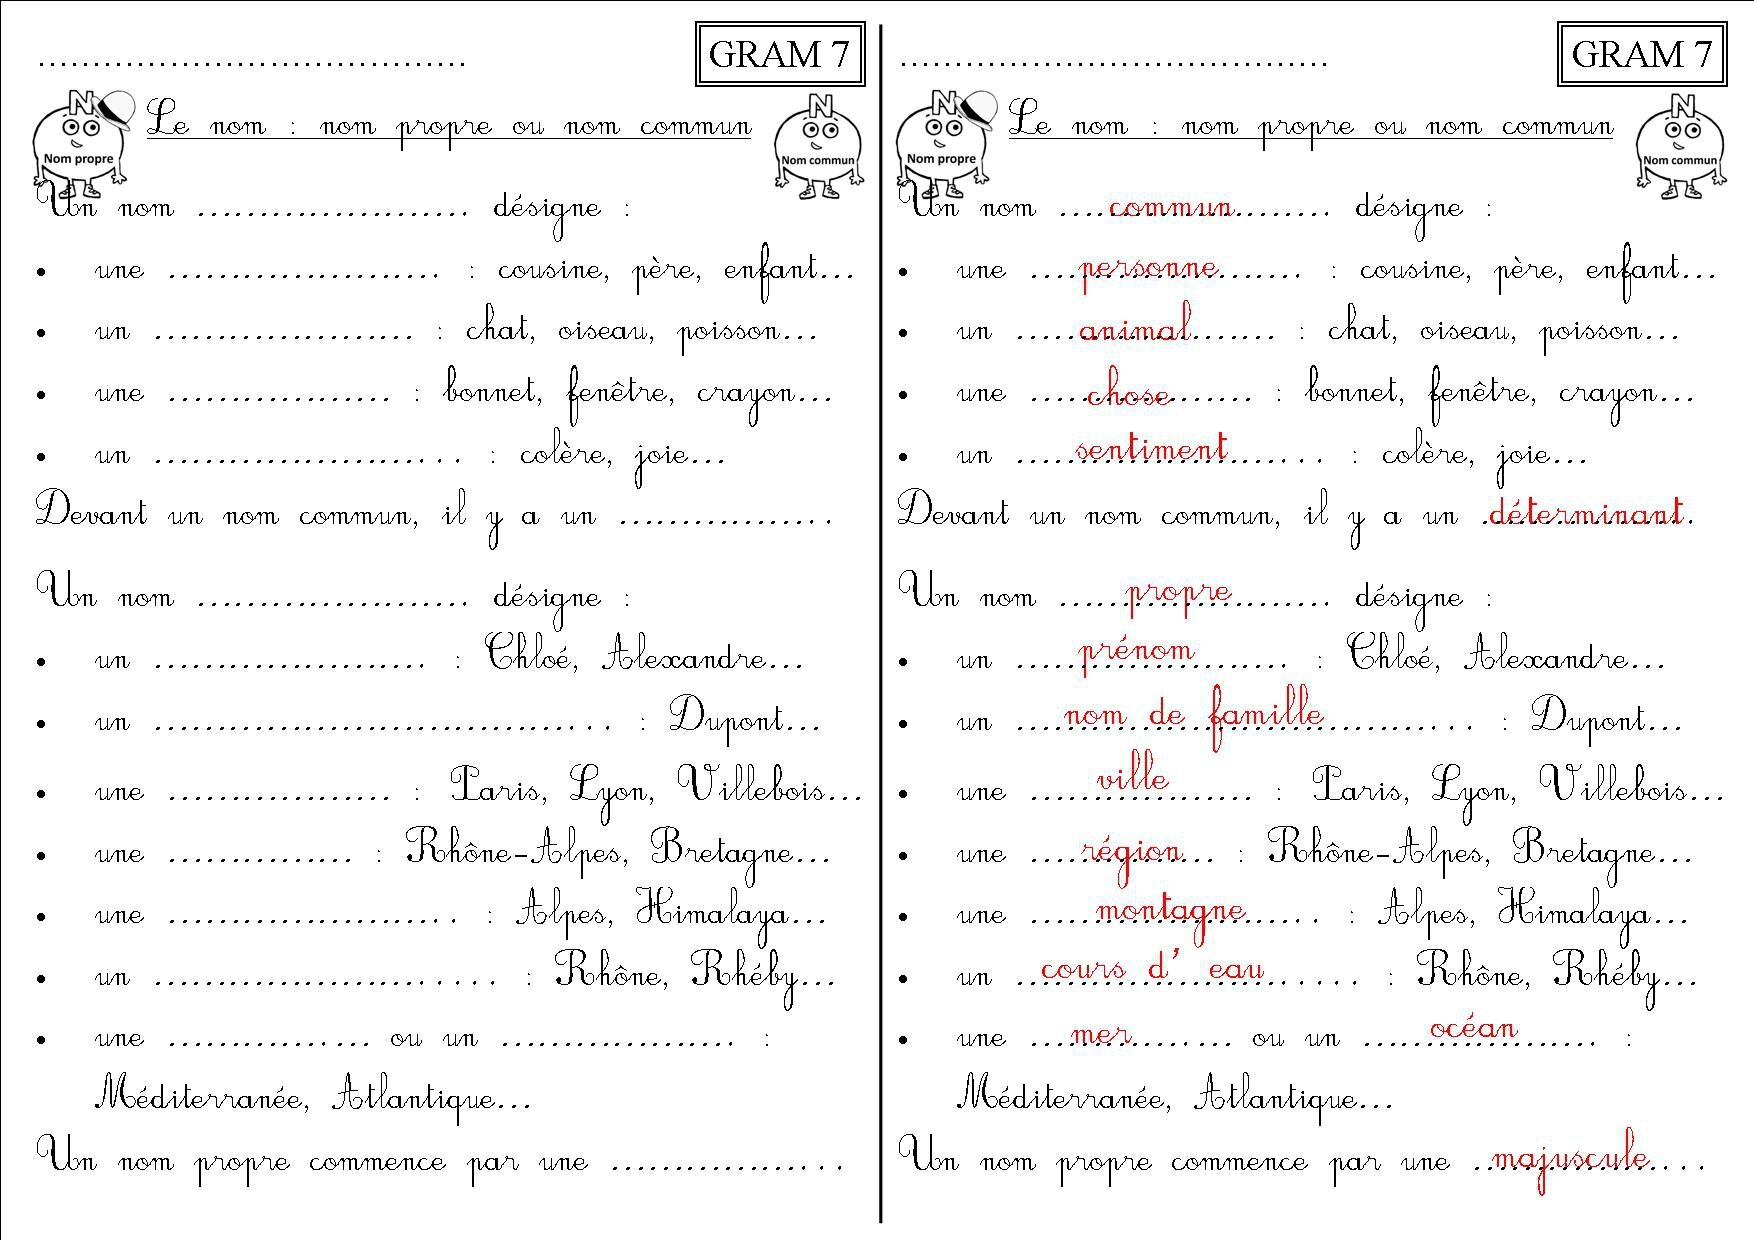 ……………………………………
GRAM 7
N
Nom propre
Le nom : nom propre ou nom commun
N
Nom commun
Un nom …………………… désigne :
• une …………………… : cousine, père, enfant…
• un ………………… : chat, oiseau, poisson…
• une ……………… : bonnet, fenêtre, crayon…
• un …………………... : colère, joie…
Devant un nom commun, il y a un ……………..
Un nom …………………… désigne :
• un …………………… : Chloé, Alexandre…
• un ………………………………... : Dupont…
• une ……………… : Paris, Lyon, Villebois…
• une …………… : Rhône-Alpes, Bretagne…
• une …………………... : Alpes, Himalaya…
• un …………………….... : Rhône, Rhéby…
• une …………….. ou un ………………… :
Méditerranée, Atlantique…
Un nom propre commence par une ………………..
……………………………………
GRAM 7
N
Nom propre
Le nom : nom propre ou nom commun
N
Nom commun
Un nom commun désigne :
• une personne : cousine, père, enfant…
• un animal : chat, oiseau, poisson…
• une chose : bonnet, fenêtre, crayon…
• un sentiment : colère, joie…
Devant un nom commun, il y a un déterminant.
Un nom propre désigne :
• un prénom : Chloé, Alexandre…
• un nom de famille : Dupont…
• une ville : Paris, Lyon, Villebois…
• une région : Rhône-Alpes, Bretagne…
• une montagne : Alpes, Himalaya…
• un cours d' eau : Rhône, Rhéby…
• une mer ou un océan :
Méditerranée, Atlantique…
Un nom propre commence par une majuscule..